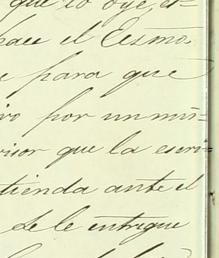 que lo oye, et-
hace el Excmo.
e para que
ivo por un mi-
visor que la escri-
tienda ante el
de le entregue